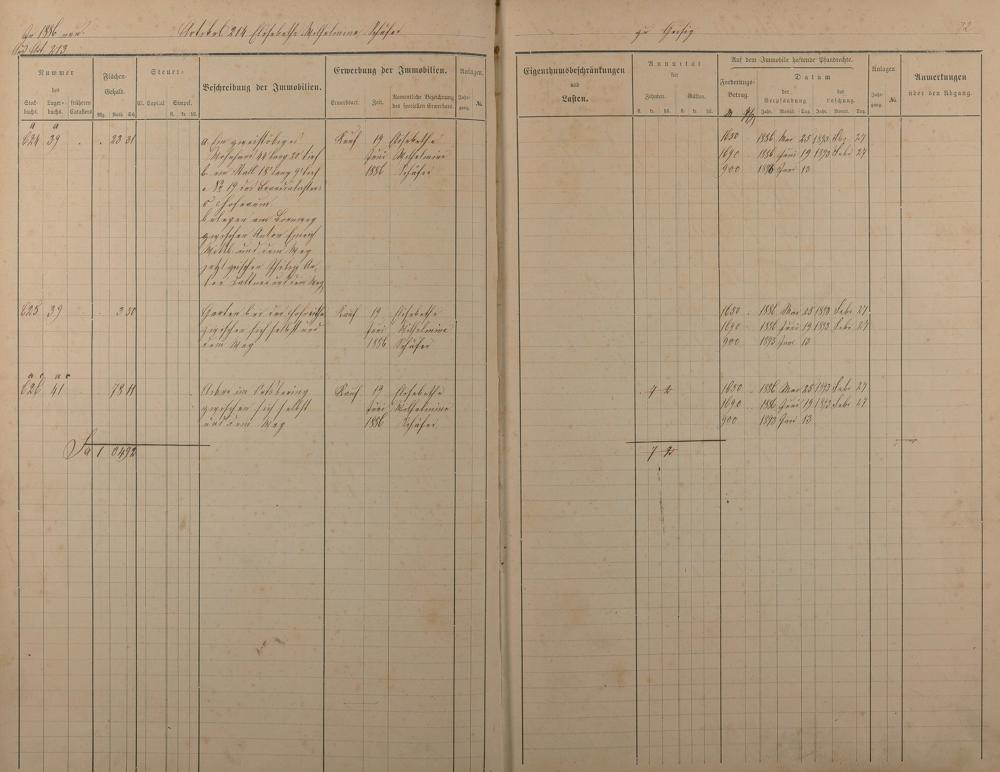 Artikel 214 Elisabethe Wilhelmine Schäfer
Art. 213
zu
72
Nummer
des
Stock-
buchs.
Lager-
buchs.
früheren
Catasters
Flächen-
Gehalt.
Mg. Ruth. Sch.
Steuer-
Cl. Capital
Simpel.
fl. kr. hl.
Beschreibung der Immobilien.
Erwerbung der Immobilien.
Erwerbsart.
Zeit.
Namentliche Bezeichnung
des speciellen Erwerbers.
Anlagen.
Jahr-
gang.
№
Eigenthumsbeschränkungen
und
Lasten.
Annuität
für
Zehnten.
Gülten.
fl. kr. hl.
fl. kr. hl.
Auf dem Immobile haftende Pfandrechte.
Forderungs-
Betrag.
Datum
der
Verpfändung
Jahr. Monat. Tag.
der
Löschung.
Jahr. Monat. Tag.
Anlagen
Jahr-
gang.
№
Anmerkungen
über den Abgang.
a a
624 39 23 31
a Ein zweistöckiges
Wohnhaus 44' lang 20' tief
b ein Stall 18' lang 9' tief
№ 19 des Brandcatasters
c Hofraum
belegen am
zwischen Anton
und dem Weg
jetzt zwischen Philipp
und dem Weg
Kauf 19 Elisabethe
Juni Wilhelmine
1886 Schäfer
1650 1886 Mai 25 1893 27
1690 1886 Juni 19 1893 Febr 27
900 1893 Juni 13
625 39 3 50
Garten bei der Hofraithe
zwischen sich selbst und
dem Weg
Kauf 19 Elisabethe
Juni Wilhelmine
1886 Schäfer
1650 1886 Mai 25 1893 Febr 27
1690 1886 Juni 19 1893 Febr 27
900 1893 Juni 13
626 41 78 11
Acker im
zwischen sich selbst
und dem Weg
Kauf 19 Elisabethe
Juni Wilhelmine
1886 Schäfer
7 2
1650 1886 Mai 25 1893 Febr 27
1690 1886 Juni 19 1893 Febr 27
900 1893 Juni 13
Sa 1 04 92
7 2